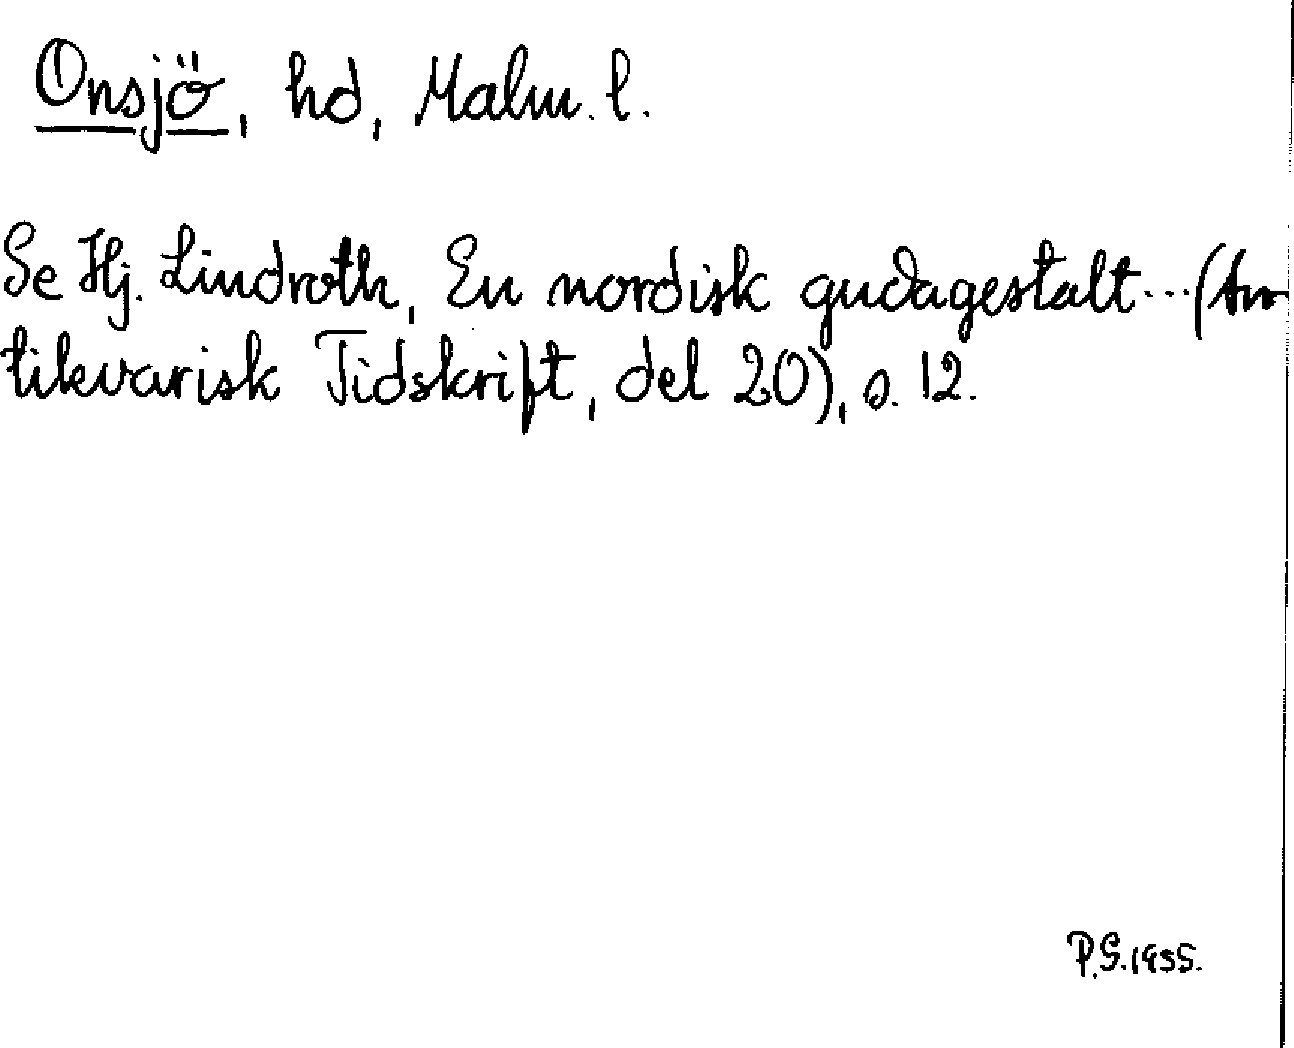 Onsjö, hd, Malm. l.
Se Hj. Lindroth, En nordisk gudagestalt...(An
tikvarisk Tidskrift, del 20), s. 12.
P.S. 1935.